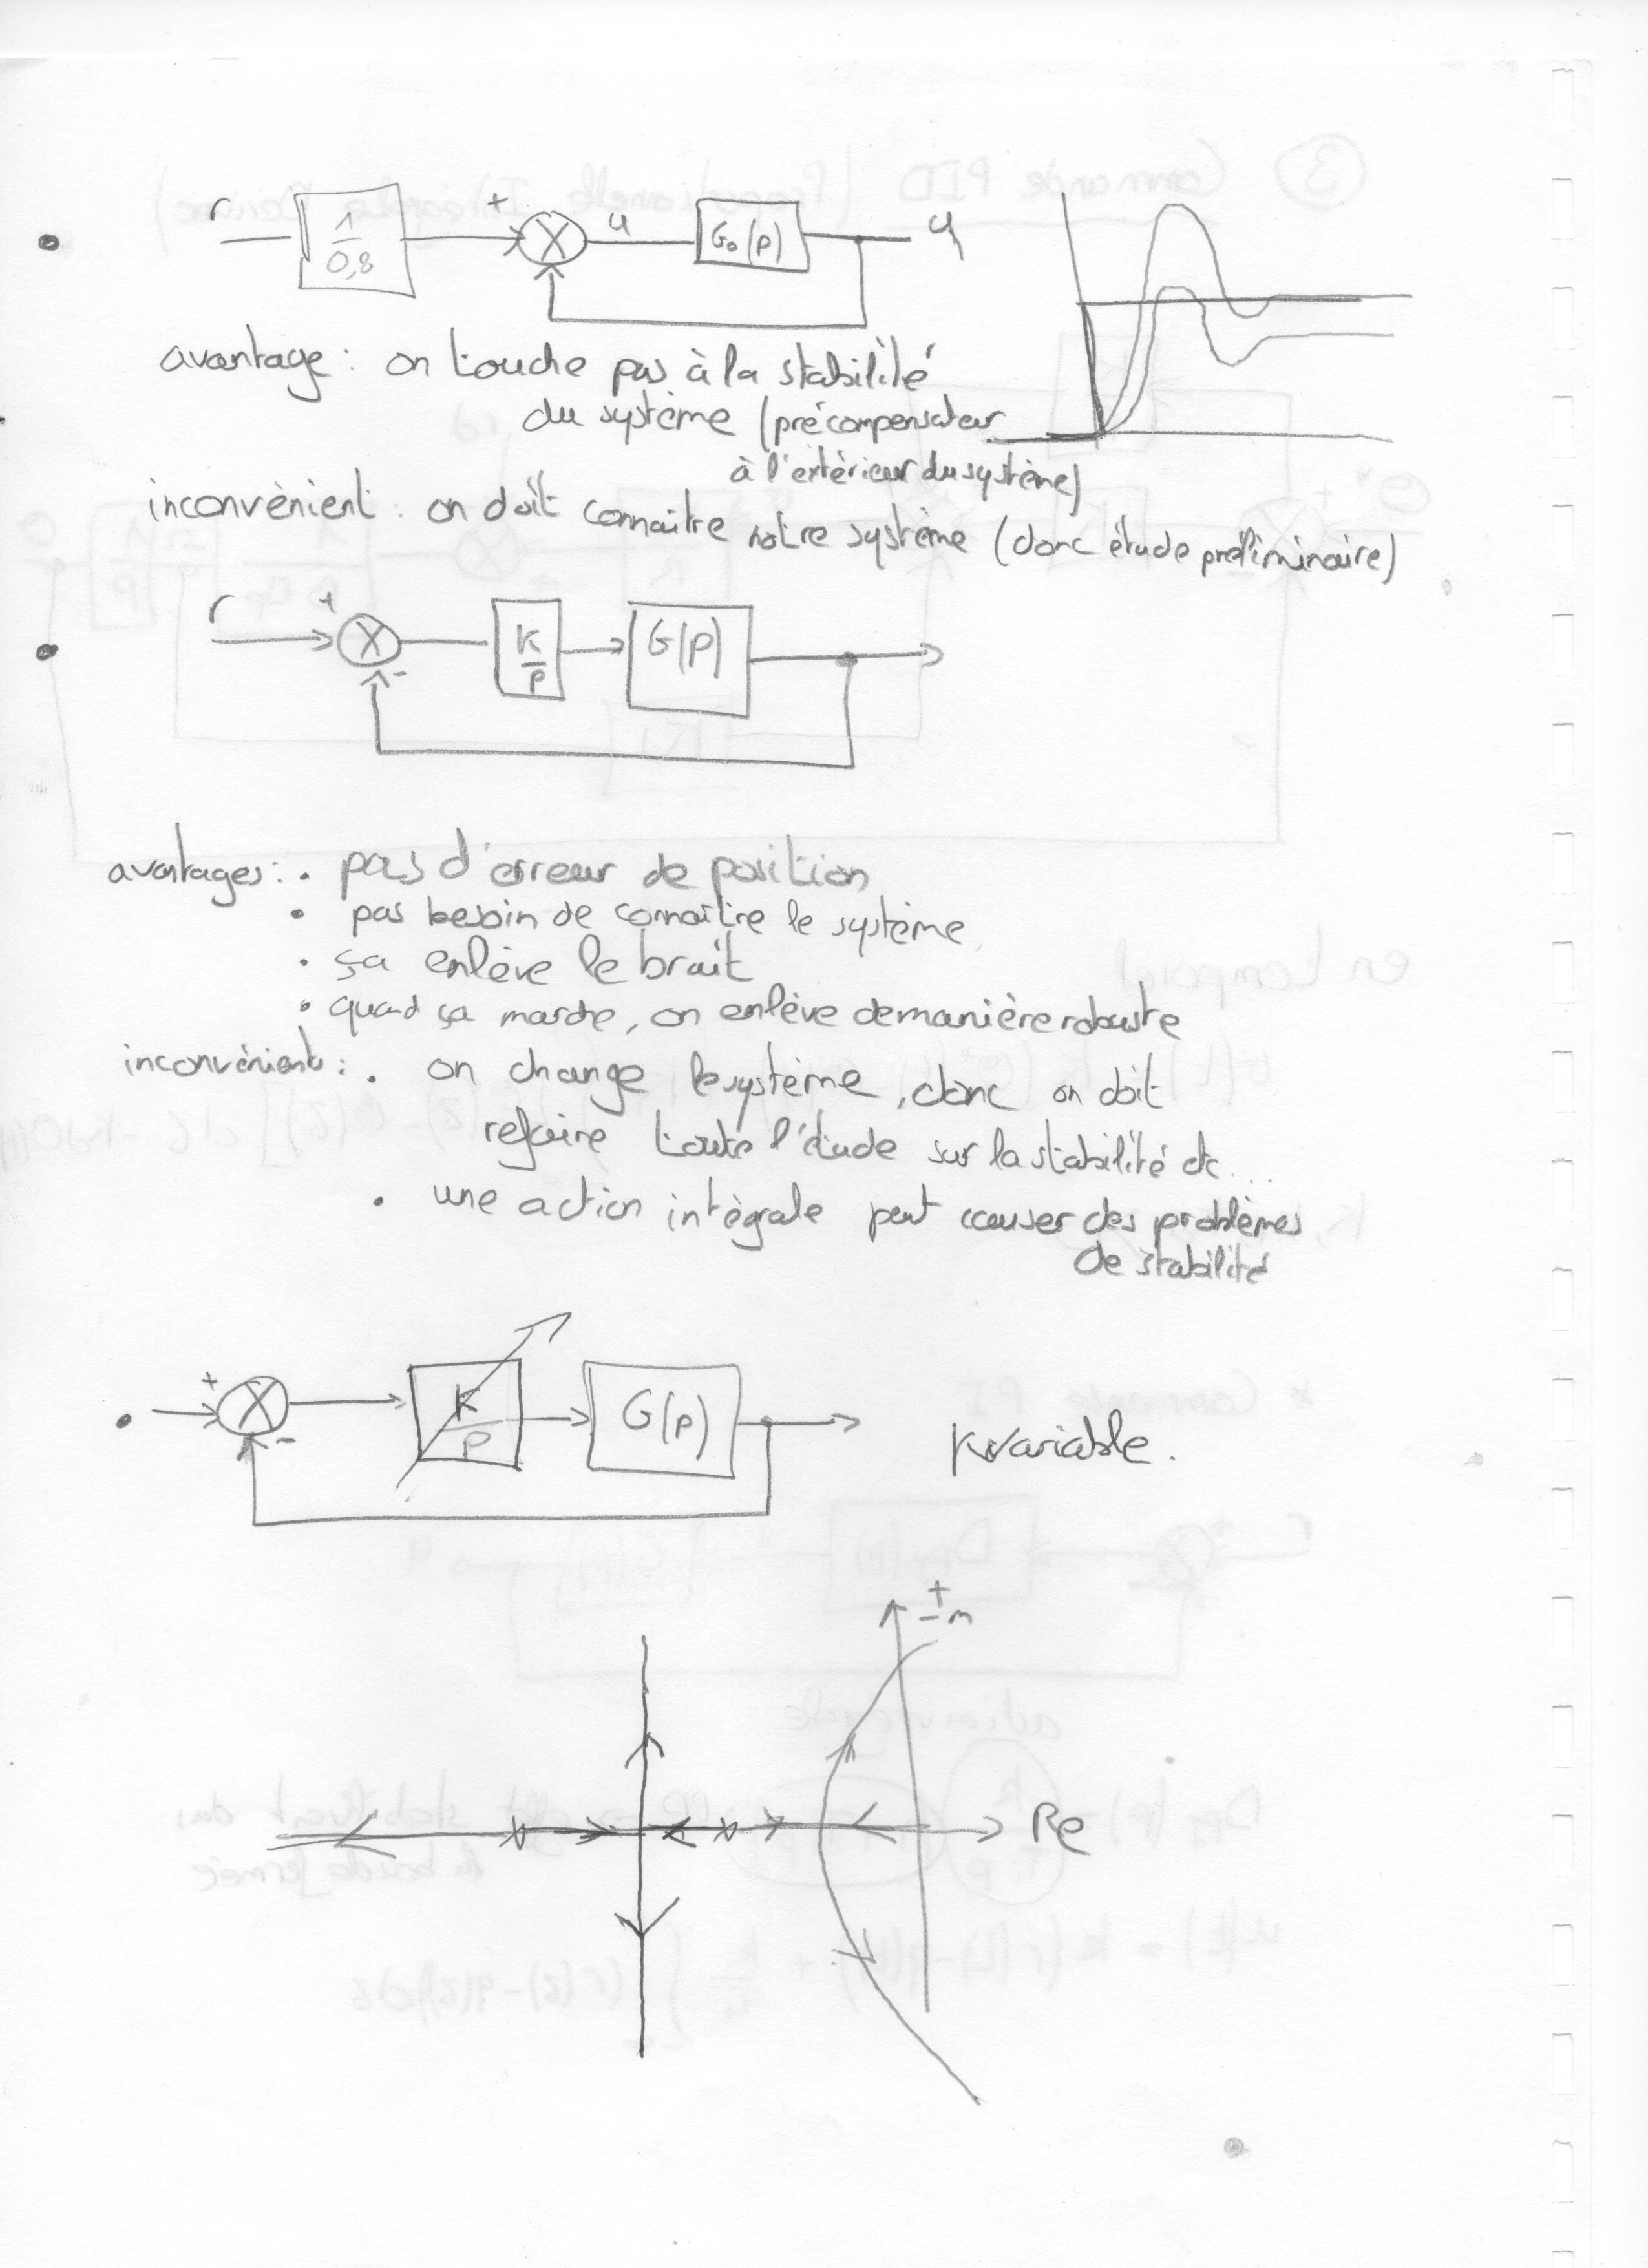 r
1
0,8
+
u
G₀(p)
y
avantage : on touche pas à la stabilité
du système (précompensateur
à l'extérieur du système)
inconvénient : on doit connaitre notre système (donc étude préliminaire)
r
+
-
K
p
G(p)
avantages : • pas d'erreur de position
• pas besoin de connaître le système
• ça enlève le bruit
• quand ça marche, on enlève de manière robuste
inconvénient : • on change le système, donc on doit
refaire toute l'étude sur la stabilité etc...
• une action intégrale peut causer des problèmes
de stabilité
+
-
K
p
G(p)
K variable.
Re